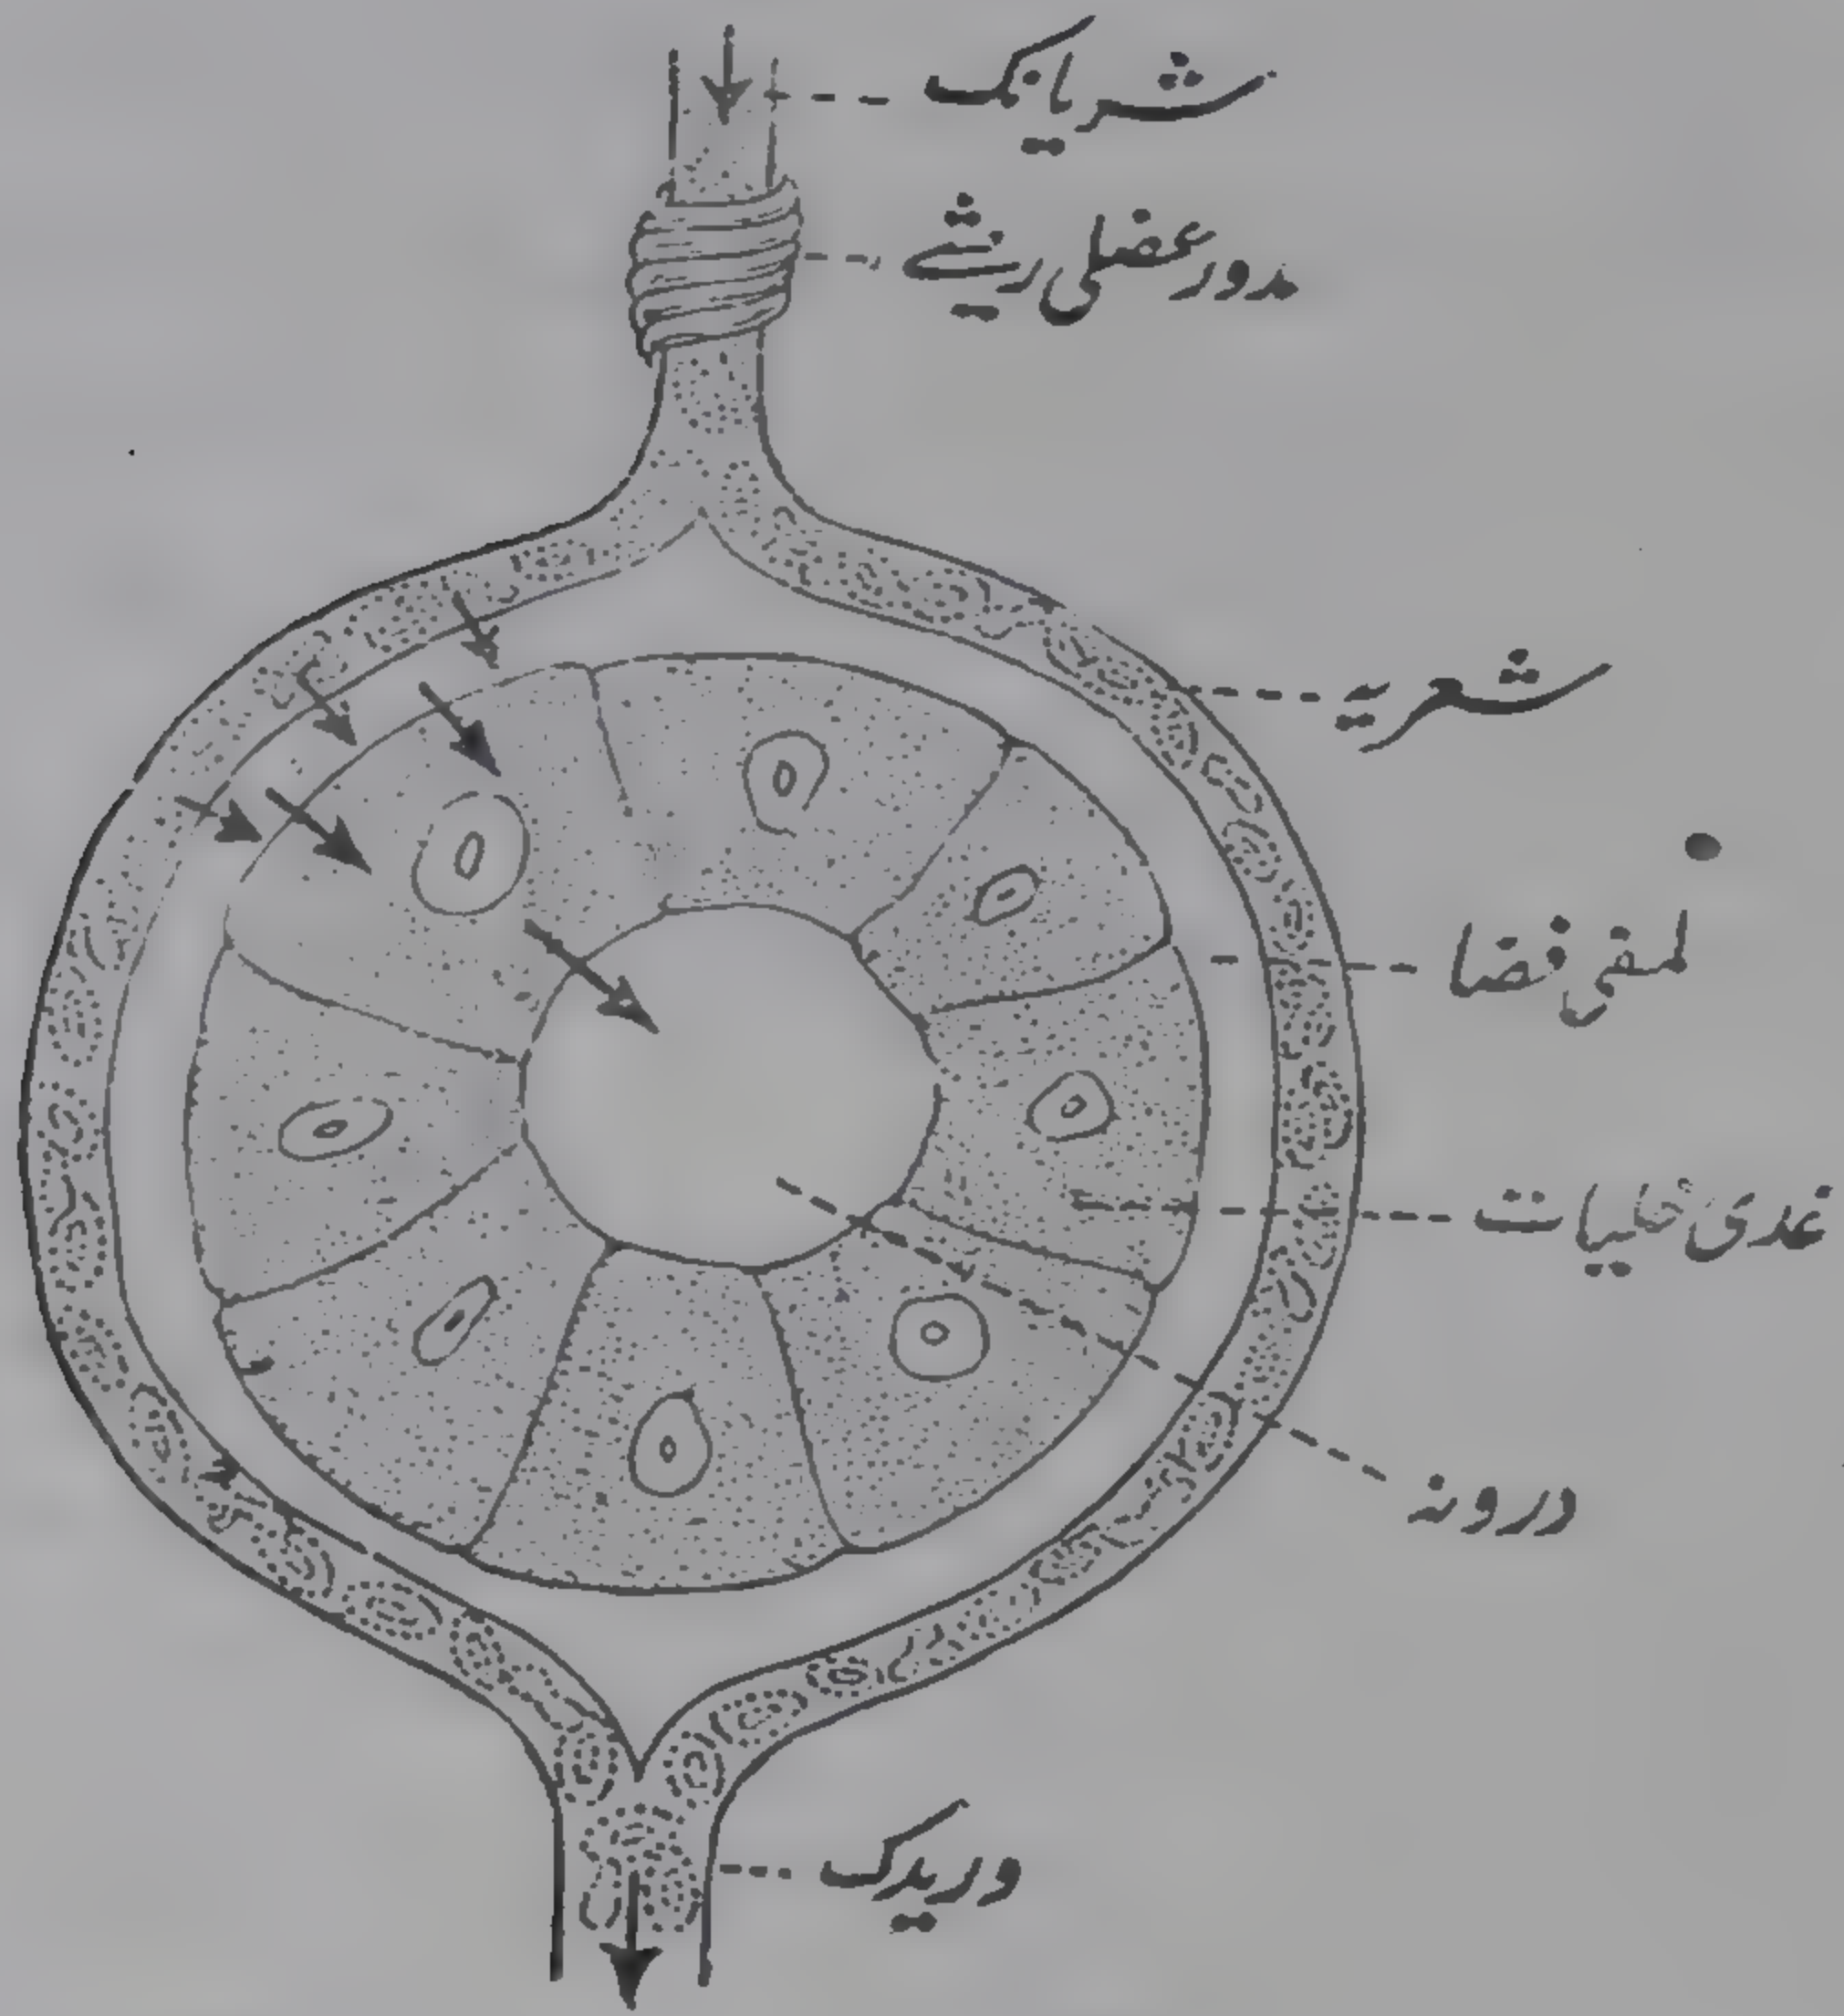 شریانک
مدور عضلی ریشے
شعریہ
لمفی فضا
غدی خلیات
درونہ
وریدک